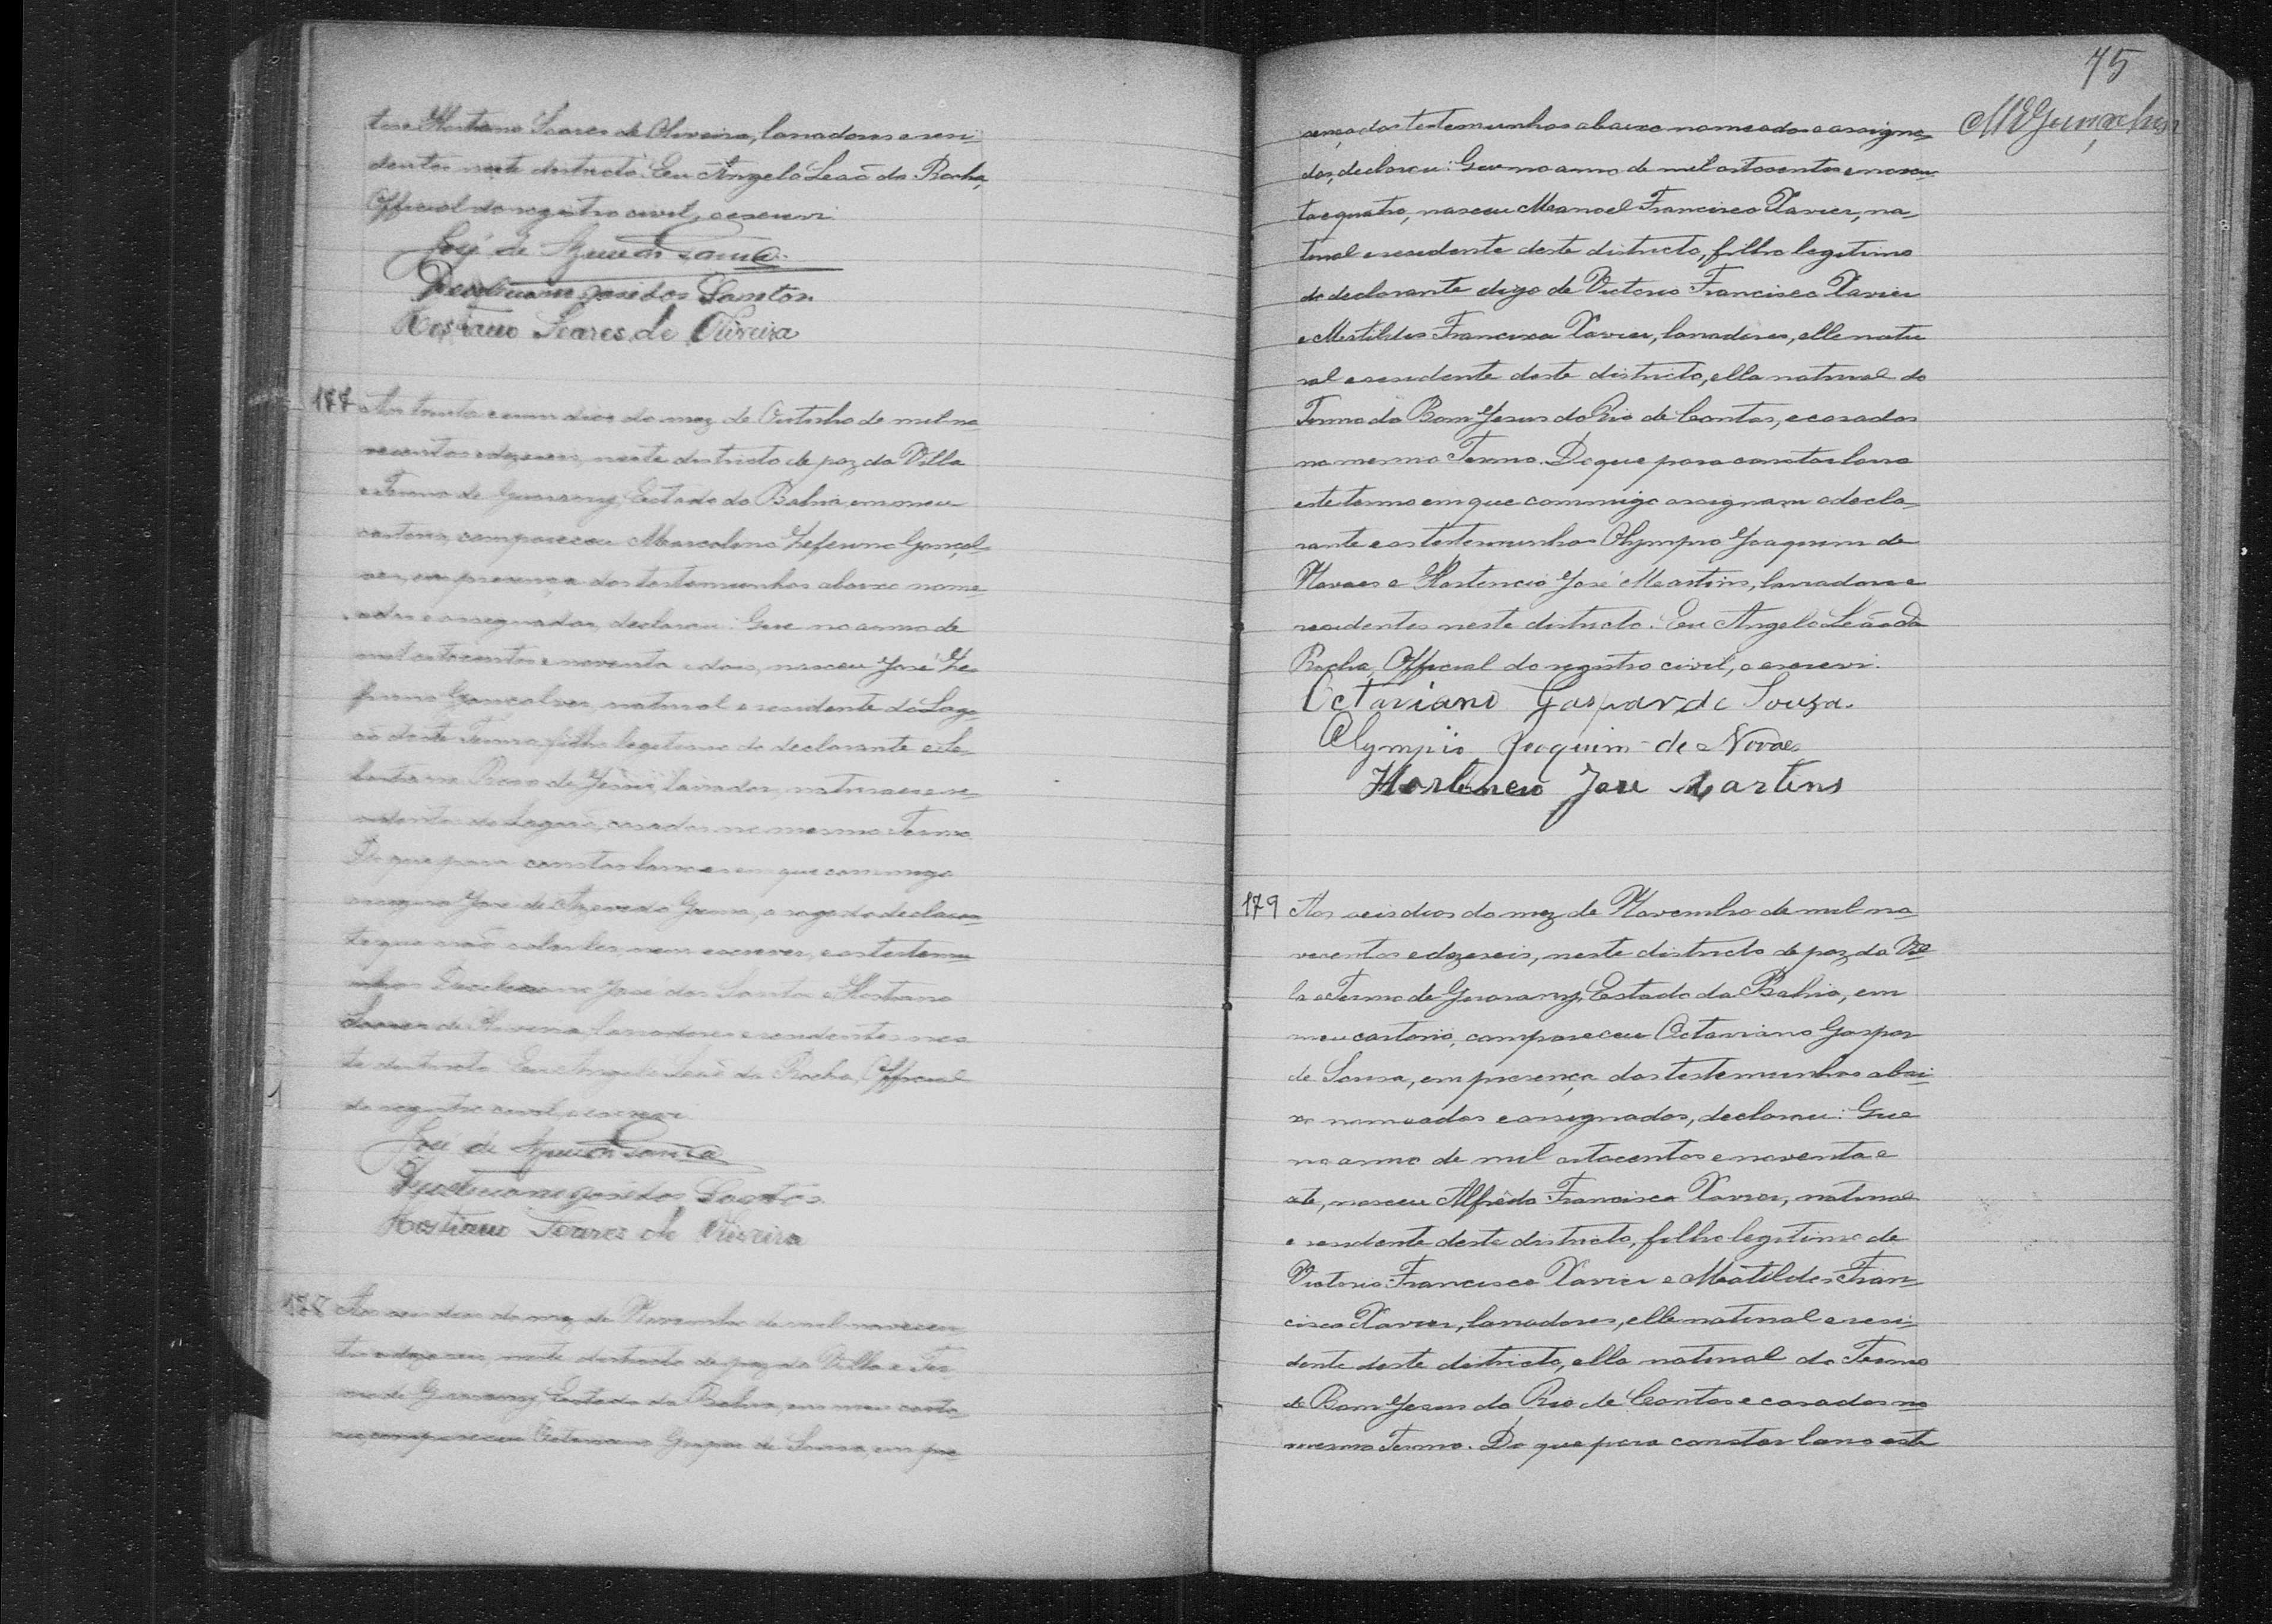 tos e Hostiano Soares de Oliveira, lavradores e resi-
dentes neste districto. Eu Angelo Leaõ da Rocha,
Official do registro civil, o escrevi.
José de Azevedo Gama
Deocleciano José dos Santos
Hostiano Soares de Oliveira
177 Aos trinta e um dias do mez de Outubro de mil no-
vecentos e dezeseis, neste districto de paz da Villa
e Termo de Guarany, Estado da Bahia, em meu
cartorio, compareceu Marcolino Zeferino Gonçal-
ves, em presença das testemunhas abaixo nome-
adas e assignadas, declarou: Que no anno de
mil oitocentos e noventa e dous, nasceu José Ze-
ferino Gonçalves, natural e residente do Lago-
aõ deste Termo, filho legitimo do declarante e
Rosa de Jesus, lavrador, naturaes e re-
sidentes do Lagoaõ, casados no mesmo Termo.
Do que para constar lavro em que commigo
assigna José de Azevedo Gama, a rogo do declaran-
te que naõ sabe ler, nem escrever, e as testemu-
nhas Deocleciano José dos Santos e Hostiano
Soares de Oliveira, lavradores e residentes nes-
te districto. Eu Angelo Leaõ da Rocha, Official
do registro civil, o escrevi.
José de Azevedo Gama
Deocleciano José dos Santos
Hostiano Soares de Oliveira
178 Aos seis dias do mez de Novembro de mil novecen-
tos e dezeseis, neste districto de paz da Villa e Ter-
mo de Guarany, Estado da Bahia, em meu carto-
rio, compareceu Octaviano Gaspar de Sousa, em pre-
75
sença das testemunhas abaixo nomeadas e assigna-
das, declarou: Que no anno de mil oitocentos e noven-
ta e quatro, nasceu Manoel Francisco Xavier, na-
tural e residente deste districto, filho legitimo
do declarante digo de Victorio Francisco Xavier
e Matildes Francisca Xavier, lavradores, elle natu-
ral e residente deste districto, ella natural do
Termo do Bom Jesus do Rio de Contas, e casados
no mesmo Termo. Do que para constar lavro
este termo em que commigo assignam o decla-
rante e as testemunhas Olympio Joaquim de
Novaes e Hortencio José Martins, lavradores e
residentes neste districto. Eu Angelo Leão da
Rocha, Official do registro civil, o escrevi.
Octaviano Gaspar de Souza.
Olympio Joaquim de Novaes
Hortencio José Martins
179 Aos seis dias do mez de Novembro de mil no-
vecentos e dezeseis, neste districto de paz da Vil-
la e Termo de Guarany, Estado da Bahia, em
meu cartorio, compareceu Octaviano Gaspar
de Sousa, em presença das testemunhas abai-
xo nomeadas e assignadas, declarou: Que
no anno de mil oitocentos e noventa e
sete, nasceu Alfrêdo Francisco Xavier, natural
e residente deste districto, filho legitimo de
Victorio Francisco Xavier e Matildes Fran-
cisca Xavier, lavradores, elle natural e resi-
dente deste districto, ella natural do Termo
do Bom Jesus do Rio de Contas e casados no
mesmo Termo. Do que para constar lavro este